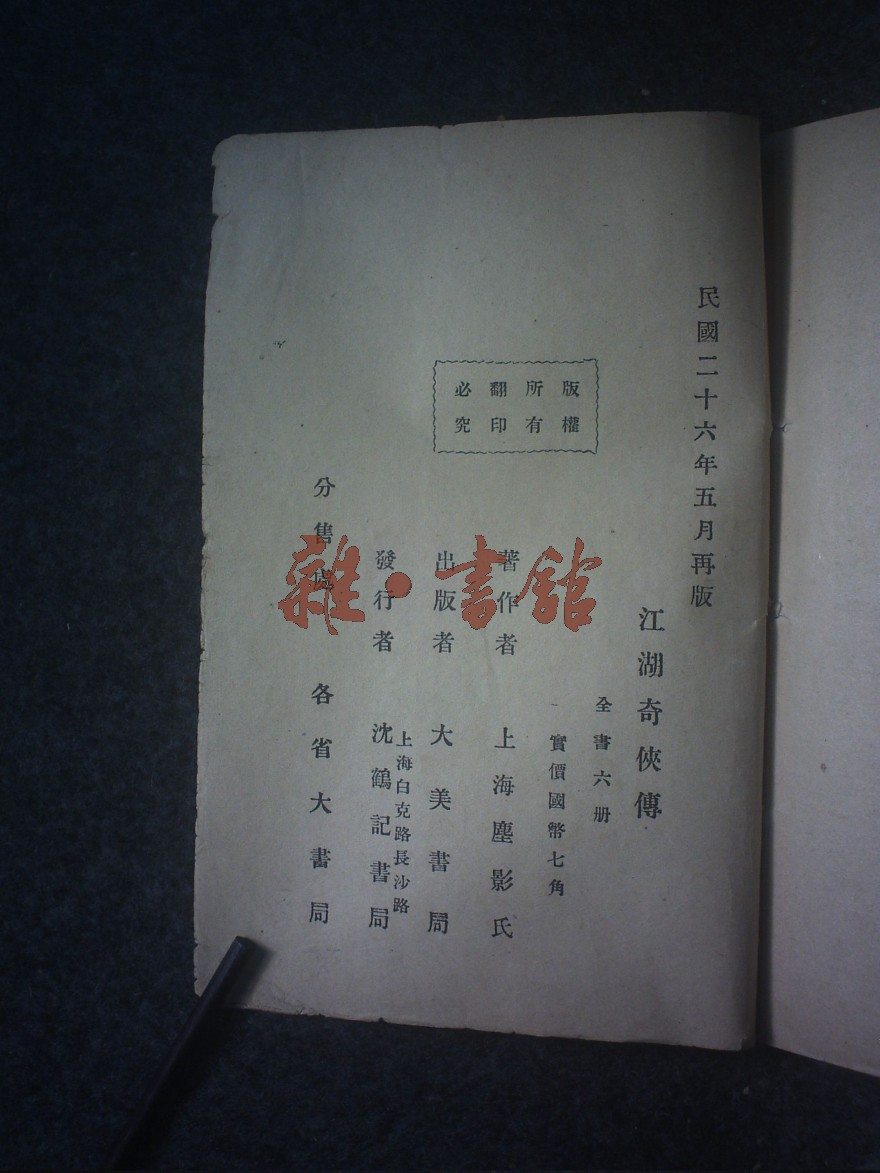 民國二十六年五月再版
江湖奇俠傳
全書六册
實價國幣七角
版權
所有
翻印
必究
著作者 上海塵影氏
出版者 大美書局
上海白克路長沙路
發行者 沈鶴記書局
分售處 各省大書局
雜·書館